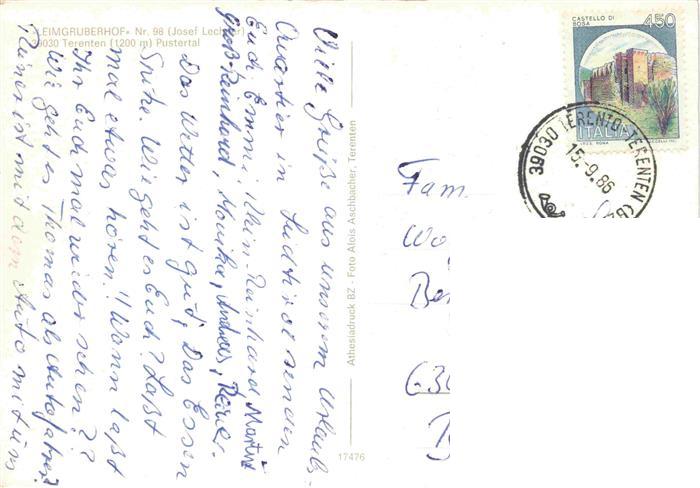 "LEIMGRUBERHOF" Nr. 98 (Josef Lechner)
39030 Terenten (1200 m) Pustertal
Viele Grüße aus unserem Urlaubs-
Quartier in Südtirol senden
Euch Emmi, Klein-Reinhard Martina
Groß-Reinhard, Monika, Andreas, Rainer.
Das Wetter ist gut, Das Essen
Spitze. Wie geht es Euch? Laßt
mal etwas hören!! Wann laßt
Ihr Euch mal wieder sehen??
Wie geht es Thomas als Autofahrer?
Reiner ist mit dem Auto mit uns
Athesiadruck BZ - Foto Alois Aschbacher, Terenten
17476
CASTELLO DI
BOSA
450
ITALIA
39030 TERENTO-TERENTEN (B
15.-9.86
Fam
Wo
Be
630